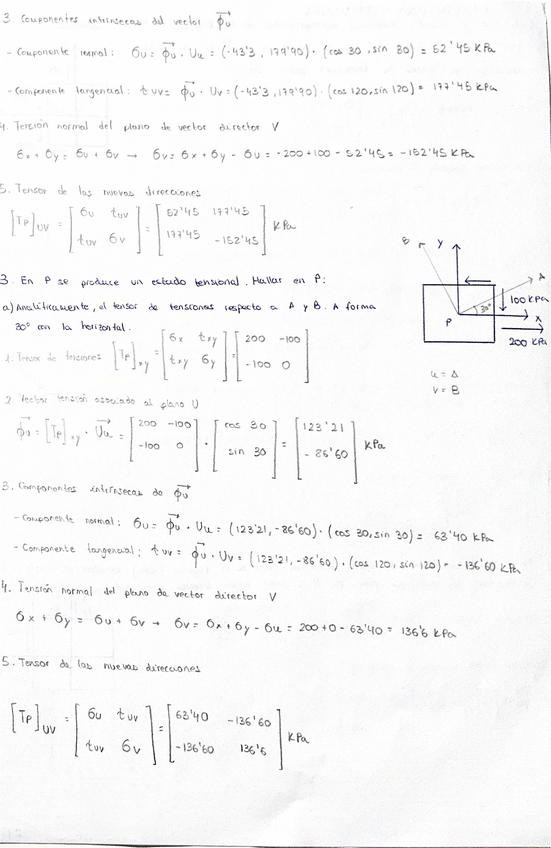 3. Componentes intrínsecas del vector ϕu
- Componente normal: σu = ϕu · Uu = (-43'3, 179'90) · (cos 30, sin 30) = 52'45 KPa
- Componente tangencial: tuv = ϕu · Uv = (-43'3, 179'90) · (cos 120, sin 120) = 177'45 KPa
4. Tensión normal del plano de vector director V
σx + σy = σu + σv → σv = σx + σy - σu = -200 + 100 - 52'45 = -152'45 KPa
5. Tensor de las nuevas direcciones
[Tp]uv = [σu tuv; tuv σv] = [52'45 177'45; 177'45 -152'45] KPa
3. En P se produce un estado tensional. Hallar en P:
a) Analíticamente, el tensor de tensiones respecto a A y B. A forma
30° con la horizontal.
1. Tensor de tensiones [Tp]xy = [σx txy; txy σy] = [200 -100; -100 0]
B
y
A
30°
P
x
100 KPa
200 KPa
u = A
v = B
2. Vector tensión asociado al plano U
ϕu = [Tp]xy · Uu = [200 -100; -100 0] · [cos 30; sin 30] = [123'21; -86'60] KPa
3. Componentes intrínsecas de ϕu
- Componente normal: σu = ϕu · Uu = (123'21, -86'60) · (cos 30, sin 30) = 63'40 KPa
- Componente tangencial: tuv = ϕu · Uv = (123'21, -86'60) · (cos 120, sin 120) = -136'60 KPa
4. Tensión normal del plano de vector director V
σx + σy = σu + σv → σv = σx + σy - σu = 200 + 0 - 63'40 = 136'6 KPa
5. Tensor de las nuevas direcciones
[Tp]uv = [σu tuv; tuv σv] = [63'40 -136'60; -136'60 136'6] KPa